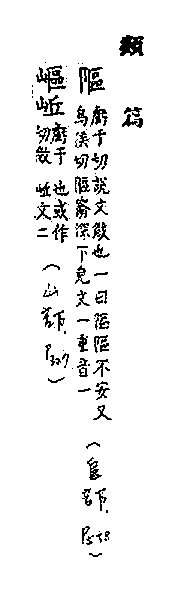 類篇
䧢 虧于切說文敧也一曰䧢䧢不安又
烏侯切䧢崙深下皃文一重音一（𨸏部. P538）
嶇岴 虧于切敧也或作岴文二（山部. P327）